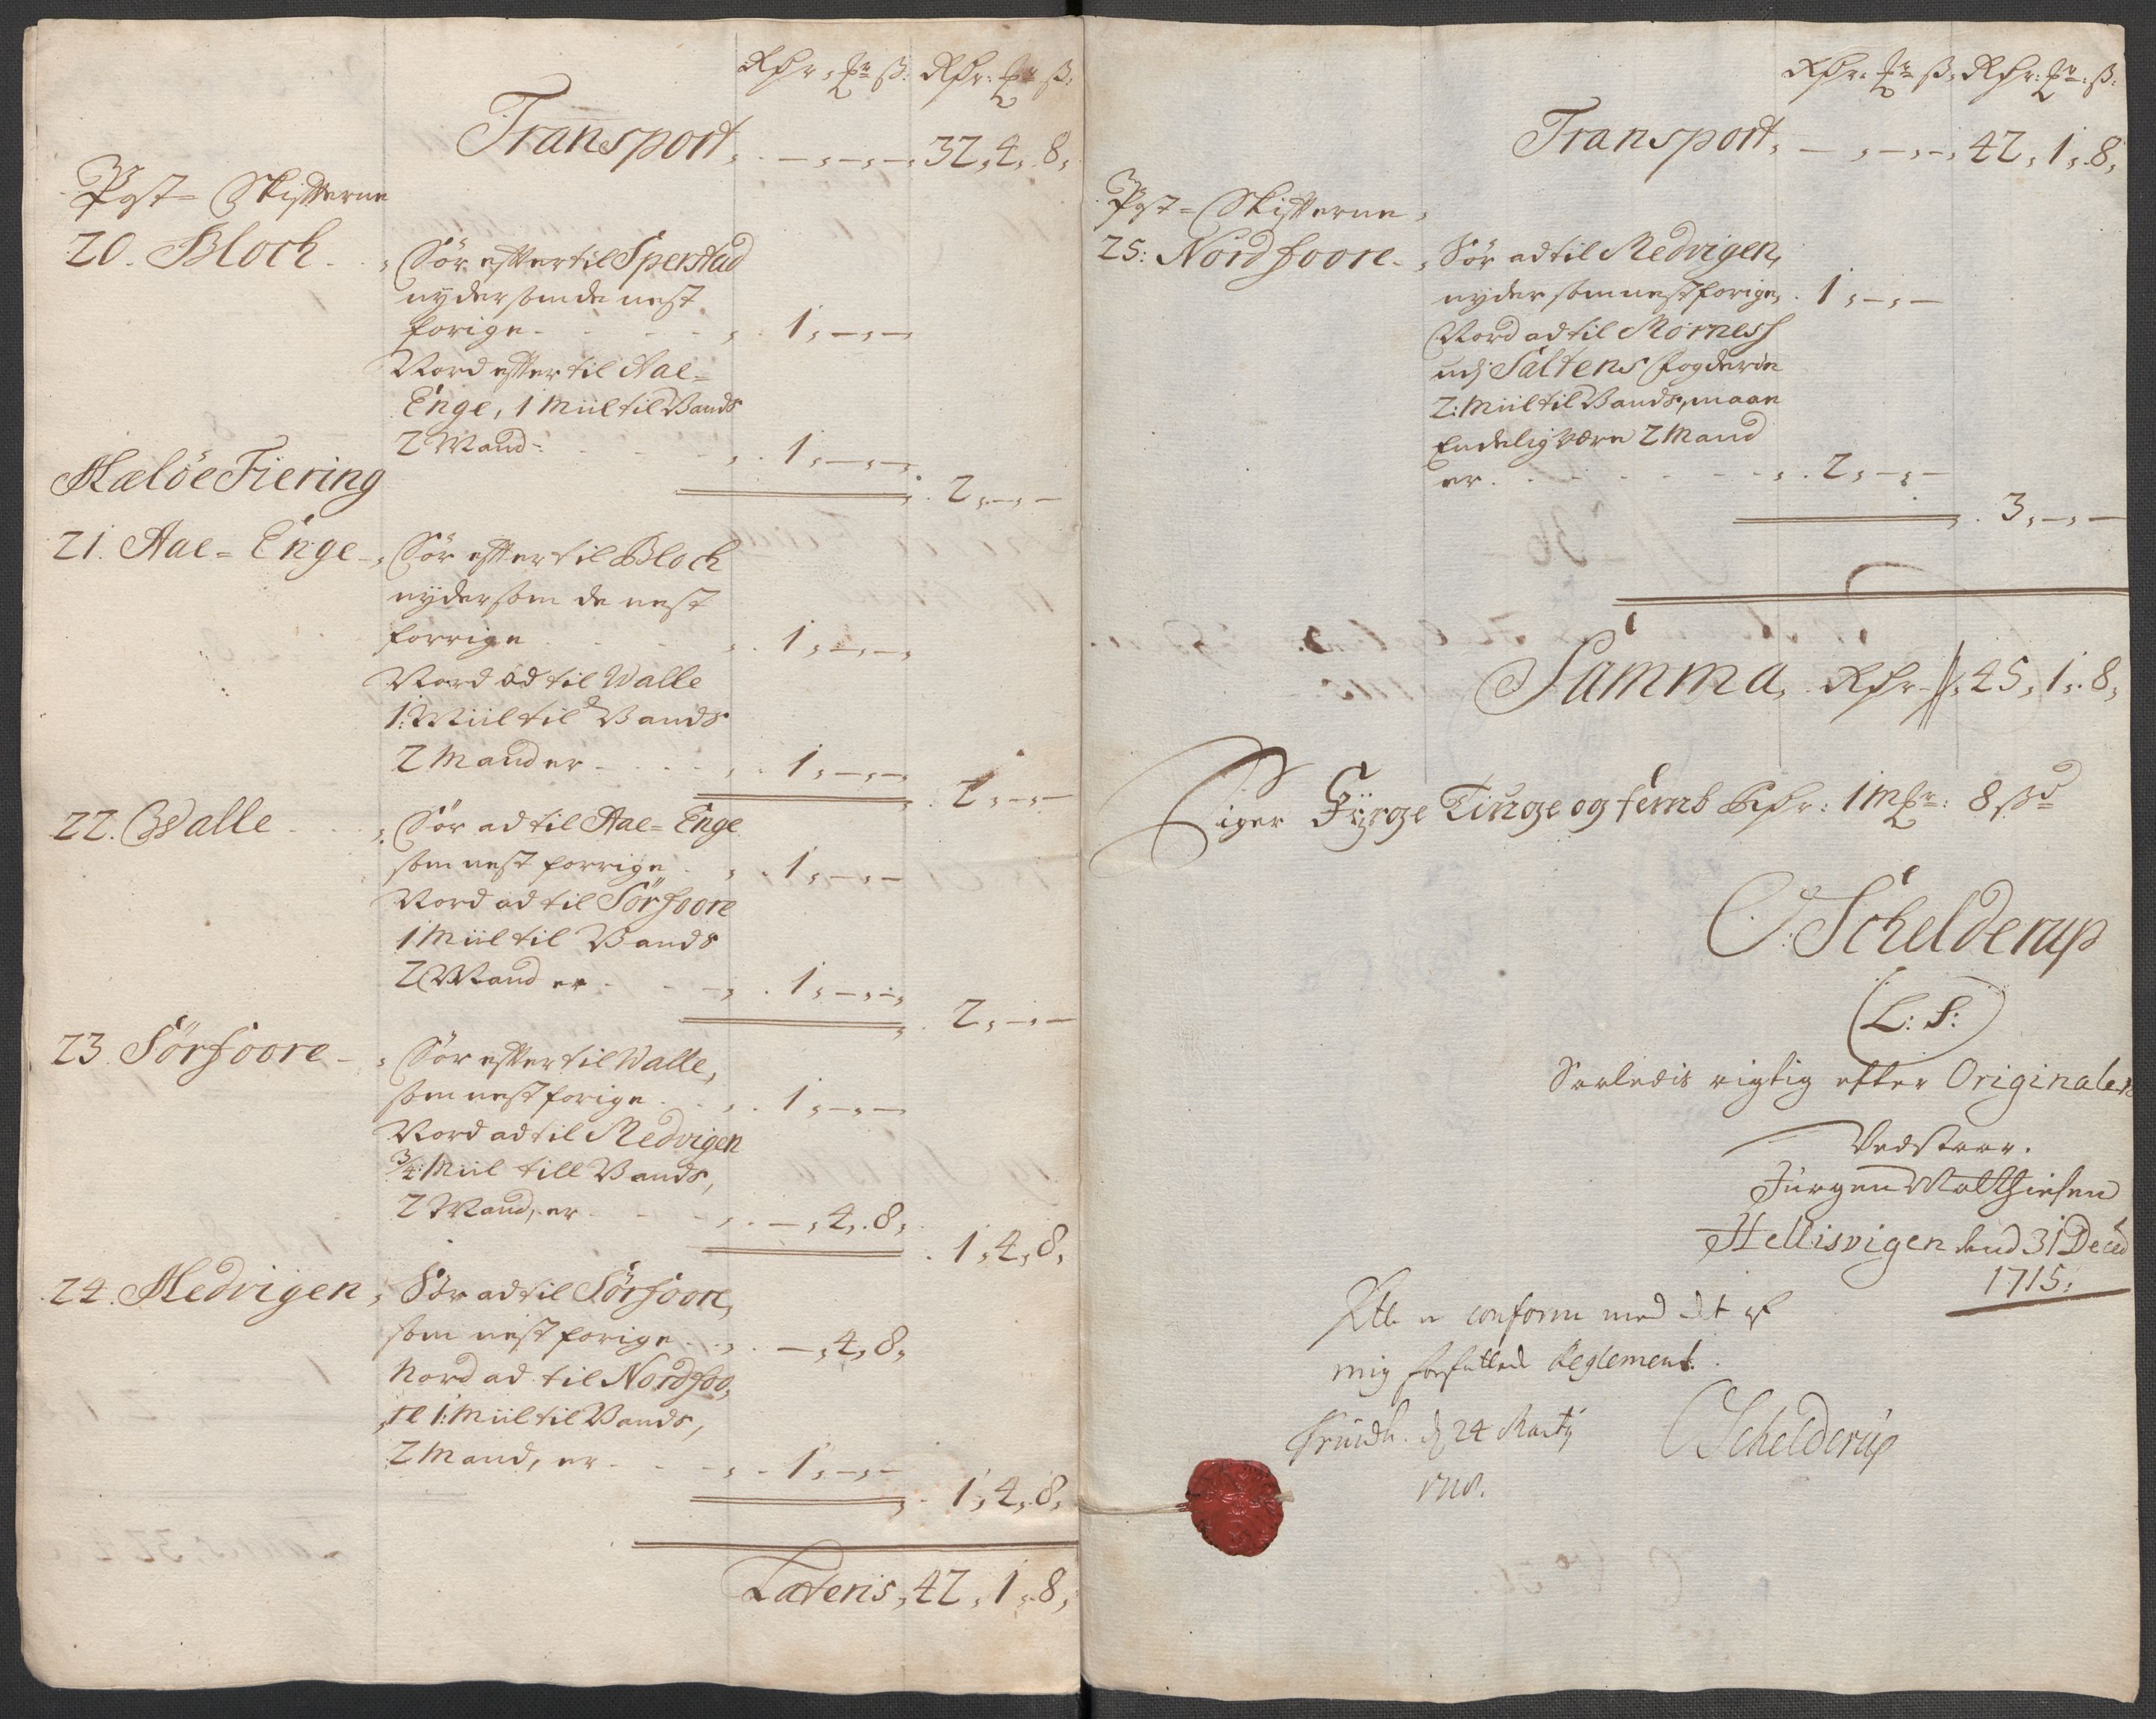 Rdr. mr ß: Rdr: mr ß:
Transport, . — , — , — , 32, 4, 8,
Post-Skifterne
20. Bloch. . , Sør effter til Sperstad
nyder som de nest
forige . . . , . 1, —, —
Nord effter til Aae=
Enge, 1 Miil til Vands
2 Mand . . . , . 1, —, —,
. 2, —, —
Mæløe Fiering
21. Aae=Enge , Sør effter til Bloch
nyder som de nest
forrige . . , . 1, —, —,
Nord ad til Walle
1: Miil til Vands
2 Mand er . . . , . 1, —, —,
. 2, —, —
22. Walle . . , Sør ad til Aae=Enge
som nest forrige . , . 1, —, —
Nord ad til Sørfoore
1 Miil til Vands
2 Mand er . . , . 1, —, —,
. 2, —, —
23. Sørfoore , Sør effter til Walle,
som nest forige . , . 1, —, —
Nord ad til Medvigen
3/4: Miil till Vands,
2 Mand, er . . , . —, 4, 8,
. 1, 4, 8,
24. Medvigen, Sør ad til Sørfoore,
som nest forige . . , . —, 4, 8,
Nord ad til Nordfoo,
,re 1: Miil til Vands,
2 Mand, er . . , . 1, —, —
. 1, 4, 8,
Lateris, 42, 1, 8,
Rdr: mr ß: Rdr: mr: ß:
Transport, — , — , —, 42, 1, 8,
Post=Skifterne,
25: Nordfoore , Sør ad til Medvigen,
nyder som nest forige, . 1, —, —
Nord ad til Morness
udj Saltens Fogderie
2: Miil til Vands, maae
Endelig være 2 Mand
er . . . , . 2, —, —
, . 3, —, —
Summa, Rdr //, 45, 1, 8,
Siger Fyrge Tiuge og femb Rdr: 1 mr: 8 ßd
O: Schelderup
(L: S:)
Saaledis rigtig efter Originalen
Vedstaar.
Jürgen Matthiesen
Hellisvigen dend 31 Deced
1715:
conform med det af
mig forfattede Reglement.
Trundh. d 24 Marty
OSchelderup